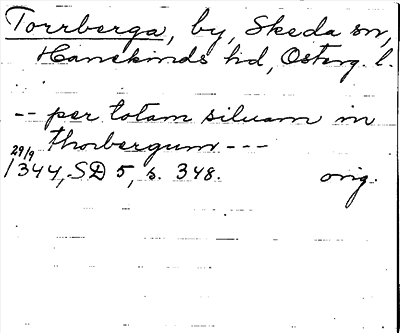 Torrberga, by, Skeda sn,
Hanekinds hd, Österg. l.
-- per totam siluam in
thorbergum ---
29/9
1344, SD 5, s. 348. orig.